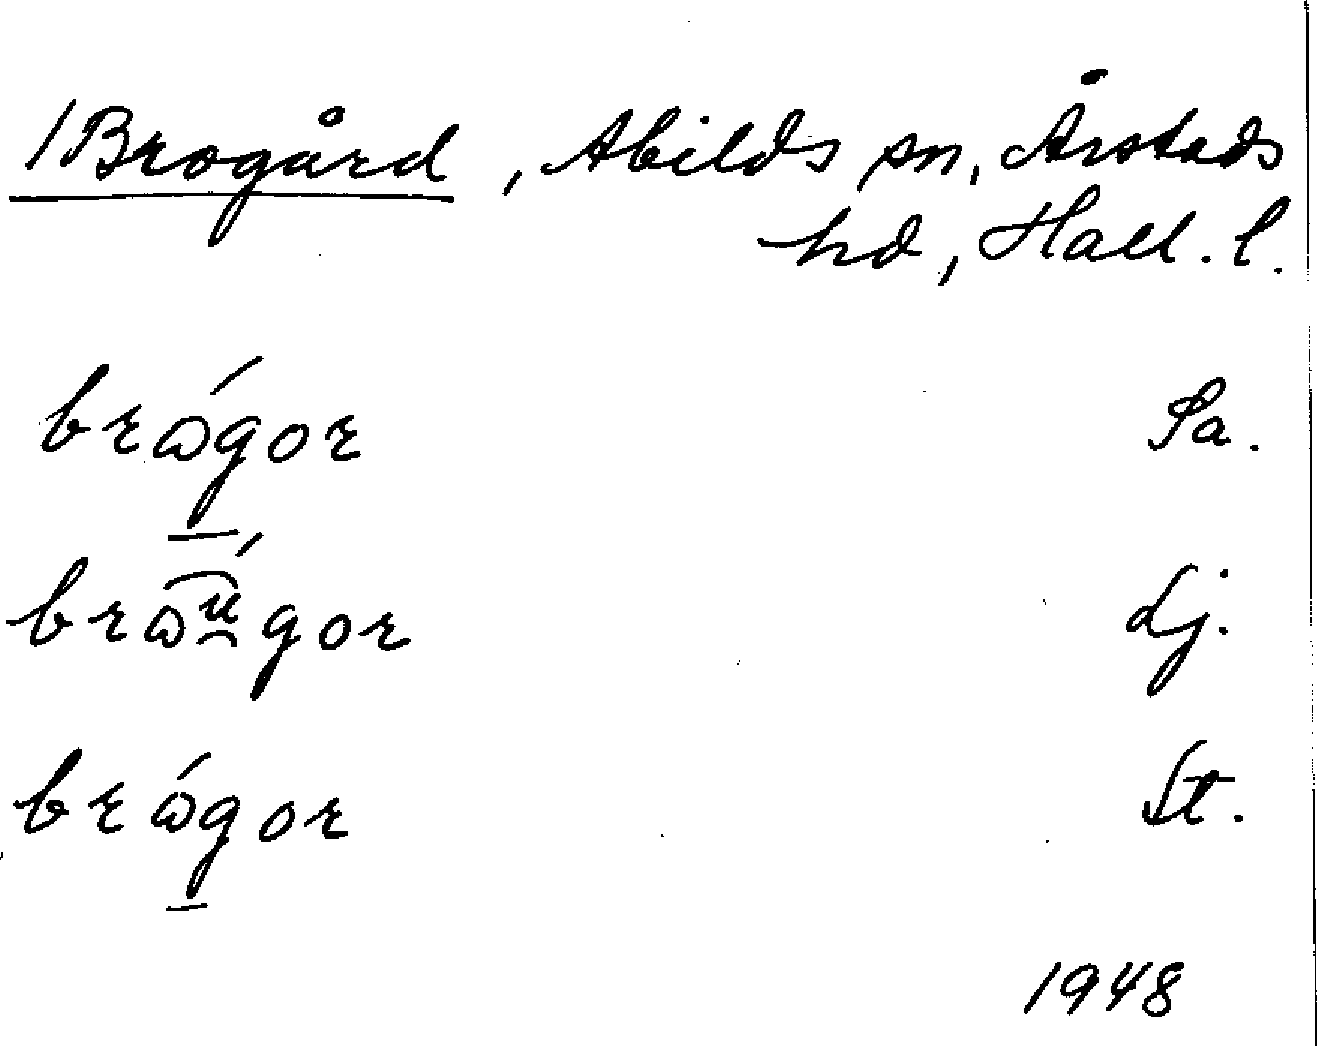 /Brogård, Abilds sn, Årstads
hd, Hall. l.
brɷ́gor Sa.
brɷ́u̯gor Lj.
brɷ́gor St.
1948